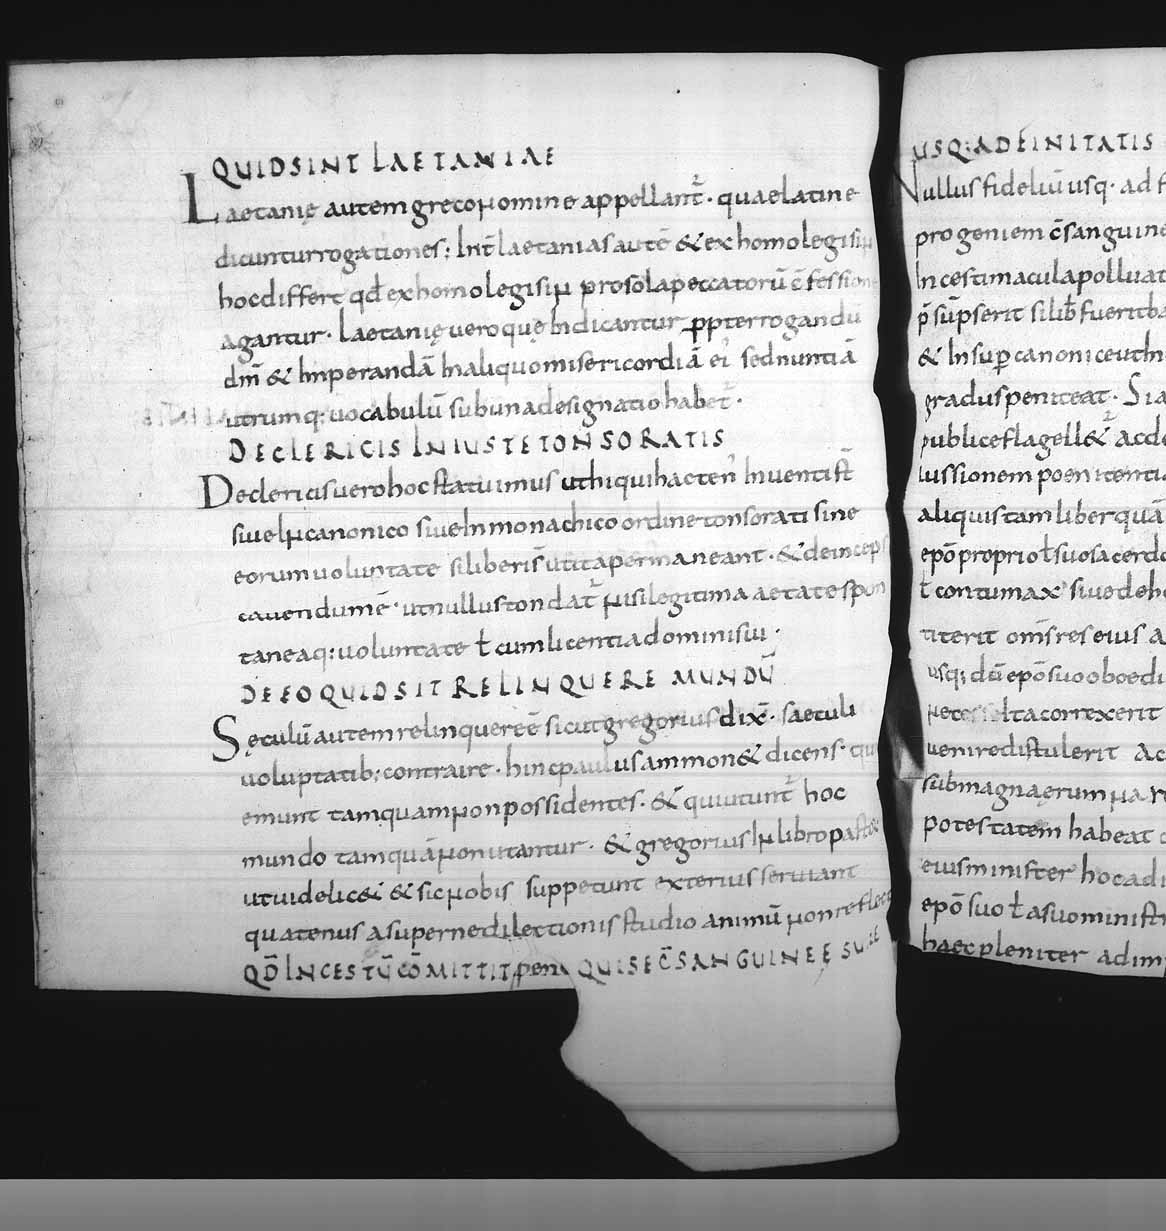 QUID SINT LAETANIAE
Laetanię autem greco nomine appellant̃. quae latine
dicuntur rogationes; Int̃ laetanias autē & exhomolegisin
hoc differt qđ exhomolegisin pro sōla peccatorū c̄fessione
agantur. Laetanię vero quę indicantur ꝓpter rogandū
dm̄ & inperandā in aliquo misericordiā ei' sed nunc iā
utrumq; vocabulū sub una designatio habet̃.
DE CLERICIS INIUSTE TONSORATIS
De clericis vero hoc statuimus ut hi qui hacten' inventi st̄
sive in canonico sive in monachico ordine tonsorati sine
eorum voluntate si liberi s̄ ut ita permaneant. & deinceps
cavendum ē ut nullus tondat̃ nisi legitima aetate spon
taneaq; voluntate ł cum licentia domini sui.
DE EO QUID SIT RELINQUERE MUNDŪ
Sęculū autem relinquere ē sicut gregorius dix̄. saeculi
voluptatib; contraire. hinc paulus ammon& dicens. qui
emunt tamquam non possidentes. & qui utunt̃ hoc
mundo tamquā non utantur. & gregorius in libro past̄
ut videlic& & sic nobis suppetunt exterius serviant
quatenus a supernę dilectionis studio animū non reflect
QĐ INCESTŪ CŌMITTIT QUI SE C̄SANGUINEĘ SUAE
USQ; AD FINITATIS
Nullus fideliū usq. ad
progeniem c̄sanguine
incesti macula polluat
p̄sūpserit si lib̃ fuerit
& insup̱ canonice ut in
gradus peniteat. Si
publice flagell&̃ Acde
iussionem poenitentia
aliquis tam liber quā
ep̄o proprio ł suo sacerdo
ł contumax' sive de ho
titerit om̄s res eius a
usq; dū ep̄o suo oboedi
correxerit
venire distulerit Ac
sub magna erumna
potestatem habeat
eius minister hoc adi
ep̄o suo ł a suo ministr
haec pleniter adim